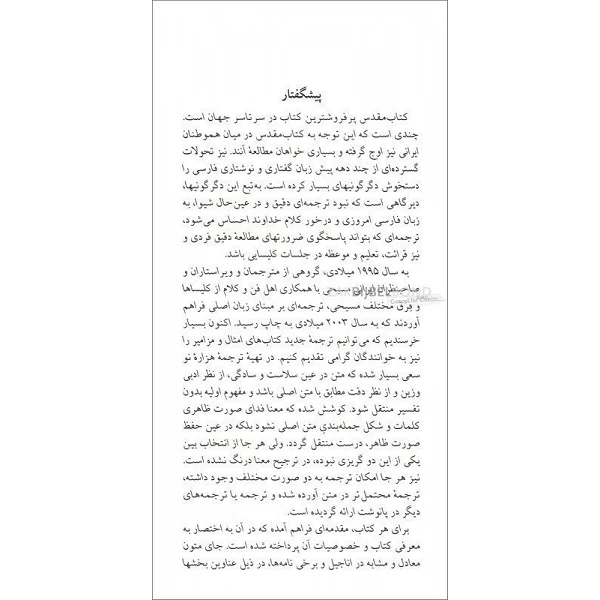 پیشگفتار
کتاب‌مقدس پرفروشترین کتاب در سرتاسر جهان است.
چندی است که این توجه به کتاب‌مقدس در میان هموطنان
ایرانی نیز اوج گرفته و بسیاری خواهان مطالعهٔ آنند. نیز تحولات
گسترده‌ای از چند دهه پیش زبان گفتاری و نوشتاری فارسی را
دستخوش دگرگونیهای بسیار کرده است. به‌تبع این دگرگونیها،
دیرگاهی است که نبود ترجمه‌ای دقیق و در عین‌حال شیوا، به
زبان فارسی امروزی و درخور کلام خداوند احساس می‌شود،
ترجمه‌ای که بتواند پاسخگوی ضرورتهای مطالعهٔ دقیق فردی و
نیز قرائت، تعلیم و موعظه در جلسات کلیسایی باشد.
به سال ۱۹۹۵ میلادی، گروهی از مترجمان و ویراستاران و
صاحبنظران ایرانی مسیحی با همکاری اهل فن و کلام از کلیساها
و فرق مختلف مسیحی، ترجمه‌ای بر مبنای زبان اصلی فراهم
آوردند که به سال ۲۰۰۳ میلادی به چاپ رسید. اکنون بسیار
خرسندیم که می‌توانیم ترجمهٔ جدید کتاب‌های امثال و مزامیر را
نیز به خوانندگان گرامی تقدیم کنیم. در تهیهٔ ترجمهٔ هزارهٔ نو
سعی بسیار شده که متن در عین سلاست و سادگی، از نظر ادبی
وزین و از نظر دقت مطابق با متن اصلی باشد و مفهوم اولیه بدون
تفسیر منتقل شود. کوشش شده که معنا فدای صورت ظاهری
کلمات و شکل جمله‌بندیِ متن اصلی نشود بلکه در عین حفظ
صورت ظاهر، درست منتقل گردد. ولی هر جا از انتخاب بین
یکی از این دو گریزی نبوده، در ترجیح معنا درنگ نشده است.
نیز هر جا امکان ترجمه به دو صورت مختلف وجود داشته،
ترجمهٔ محتمل‌تر در متن آورده شده و ترجمه یا ترجمه‌های
دیگر در پانوشت ارائه گردیده است.
برای هر کتاب، مقدمه‌ای فراهم آمده که در آن به اختصار به
معرفی کتاب و خصوصیات آن پرداخته شده است. جای متون
معادل و مشابه در اناجیل و برخی نامه‌ها، در ذیل عناوین بخشها